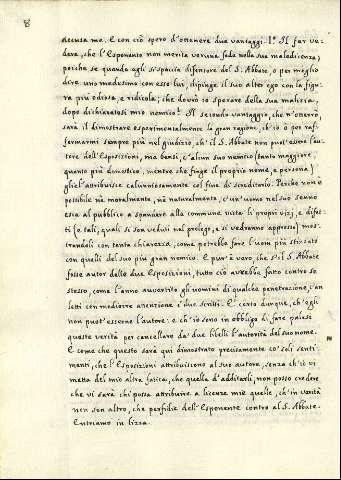 8
accusa mo. E con ciò spero d'ottenere due vantaggi. I.º Il far ve-
dere, che l'Esponente non merita veruna fede nella sua maledicenza;
poiche se quando egli si spaccia difensore del S. Abbate, o per meglio
dire uno medesimo con esso lui, dipinge il suo alter ego con la figu-
ra più odiosa, e ridicola; che dovrò io sperare della sua malizia,
dopo dichiaratosi mio nemico? Il secondo vantaggio, che n'otterrò
sarà il dimostrare esperimentalmente la gran ragione, ch'io ò per raf-
fermarmi sempre più nel giudizio, ch'il S. Abbate non può esser l'au-
tore dell'Esposizioni, ma bensì, ch'alcun suo nemico (tanto maggiore,
quanto più domestico, mentre che finge il proprio nome, e persona)
gliel'attribuisce calunniosamente col fine di screditarlo. Perche non è
possibile nè moralmente, nè naturalmente, ch'un'uomo nel suo senno
esca al pubblico a spandere alla commune vista li propri vizj, e difet-
ti (e tali, quali si son veduti nel prologo, e si vedranno appresso) mos-
trandoli con tanta chiarezza, come potrebbe fare l'uom più stizzato
con quelli del suo più gran nemico. E pur'è vero, che s'il S. Abbate
fosse autor delle due Esposizioni, tutto ciò avrebbe fatto contro se
stesso, come l'anno avvertito gli uomini di qualche penetrazione, ch'an
letti con mediocre attenzione i due scritti. E' certo dunque, ch'egli
non può essere l'autore: e ch'io sono in obbligo di fare palese
questa verità per cancellare da' due libelli l'autorità del suo nome.
E come che questo sarà qui dimostrato precisamente co' soli senti-
menti, che l'Esposizioni attribuiscono al suo autore, senza ch'io vi
metta del mio altra fatica, che quella d'additarli, non posso credere
che vi sarà chi possa attribuire a licenze mie quelle, ch'in verità
non son altro, che perfidie dell'Esponente contro al S. Abbate.
Entriamo in lizza.